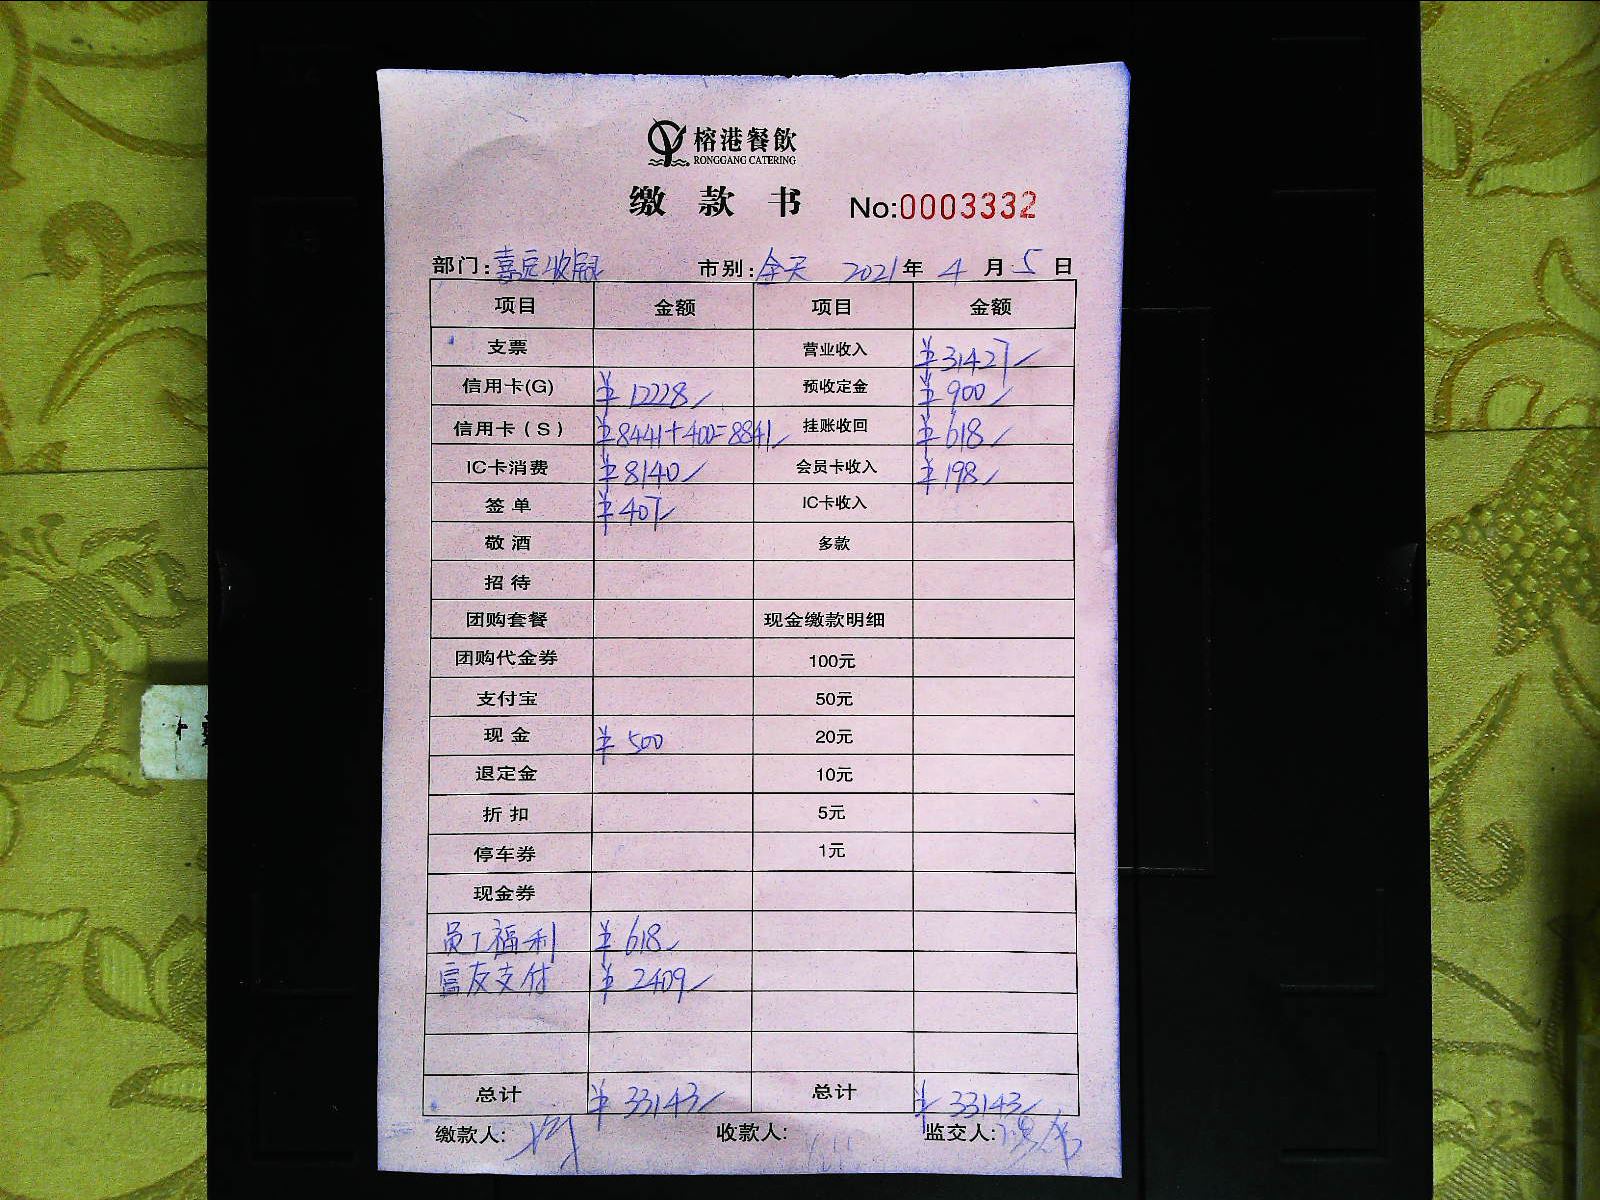 榕港餐飲
RONGGANG CATERING
缴 款 书 No:0003332
部门: 市别:全天 2021年 4月 5日
项目 金额 项目 金额
支票 营业收入 ¥31427
信用卡(G) ¥12228 预收定金 ¥900
信用卡(S) ¥8441+400=8841 挂账收回 ¥618
IC卡消费 ¥8140 会员卡收入 ¥198
签单 ¥407 IC卡收入
敬酒 多款
招待
团购套餐 现金缴款明细
团购代金券 100元
支付宝 50元
现金 ¥500 20元
退定金 10元
折扣 5元
停车券 1元
现金券
员工福利 ¥618
富友支付 ¥2409
总计 ¥33143 总计 ¥33143
缴款人: 收款人: 监交人: